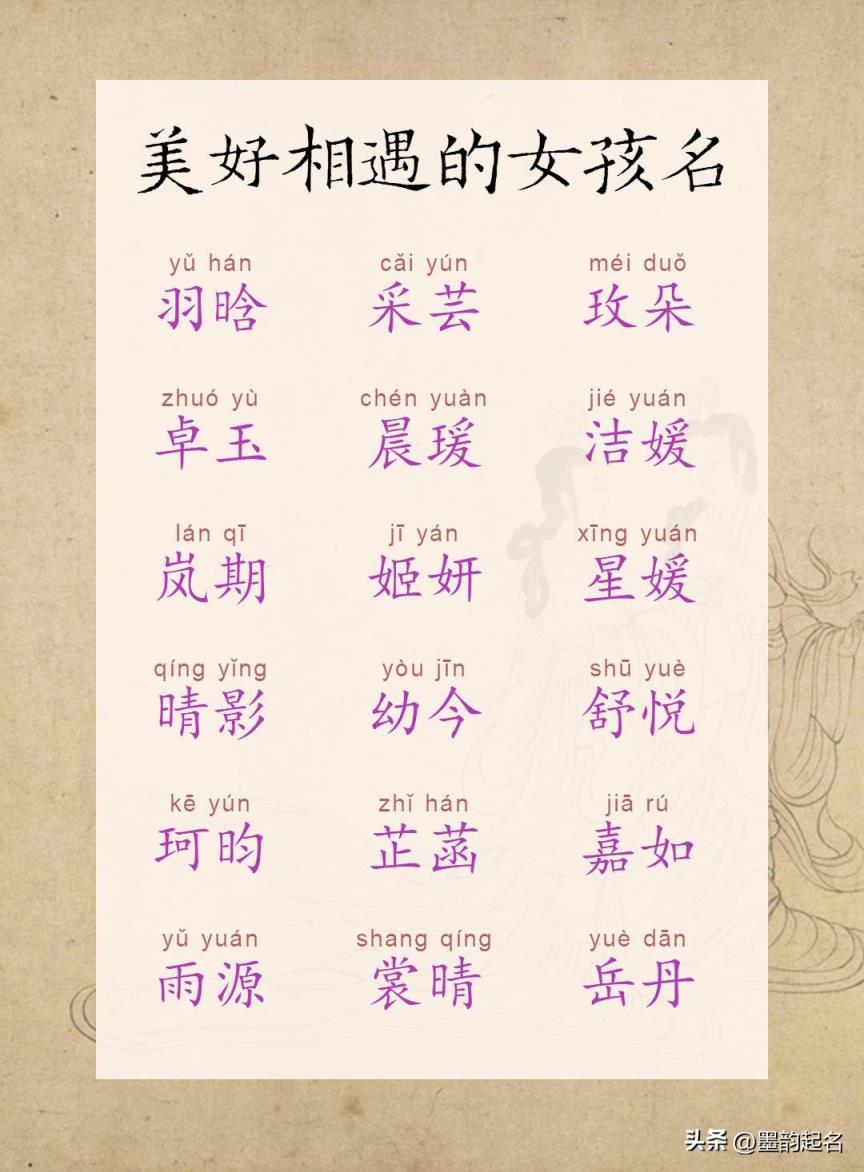 美好相遇的女孩名
yǔ hán cǎi yún méi duǒ
羽晗 采芸 玫朵
zhuó yù chén yuàn jié yuán
卓玉 晨瑗 洁媛
lán qī jī yán xīng yuán
岚期 姬妍 星媛
qíng yǐng yòu jīn shū yuè
晴影 幼今 舒悦
kē yún zhǐ hán jiā rú
珂昀 芷菡 嘉如
yǔ yuán shang qíng yuè dān
雨源 裳晴 岳丹
头条 @墨韵起名